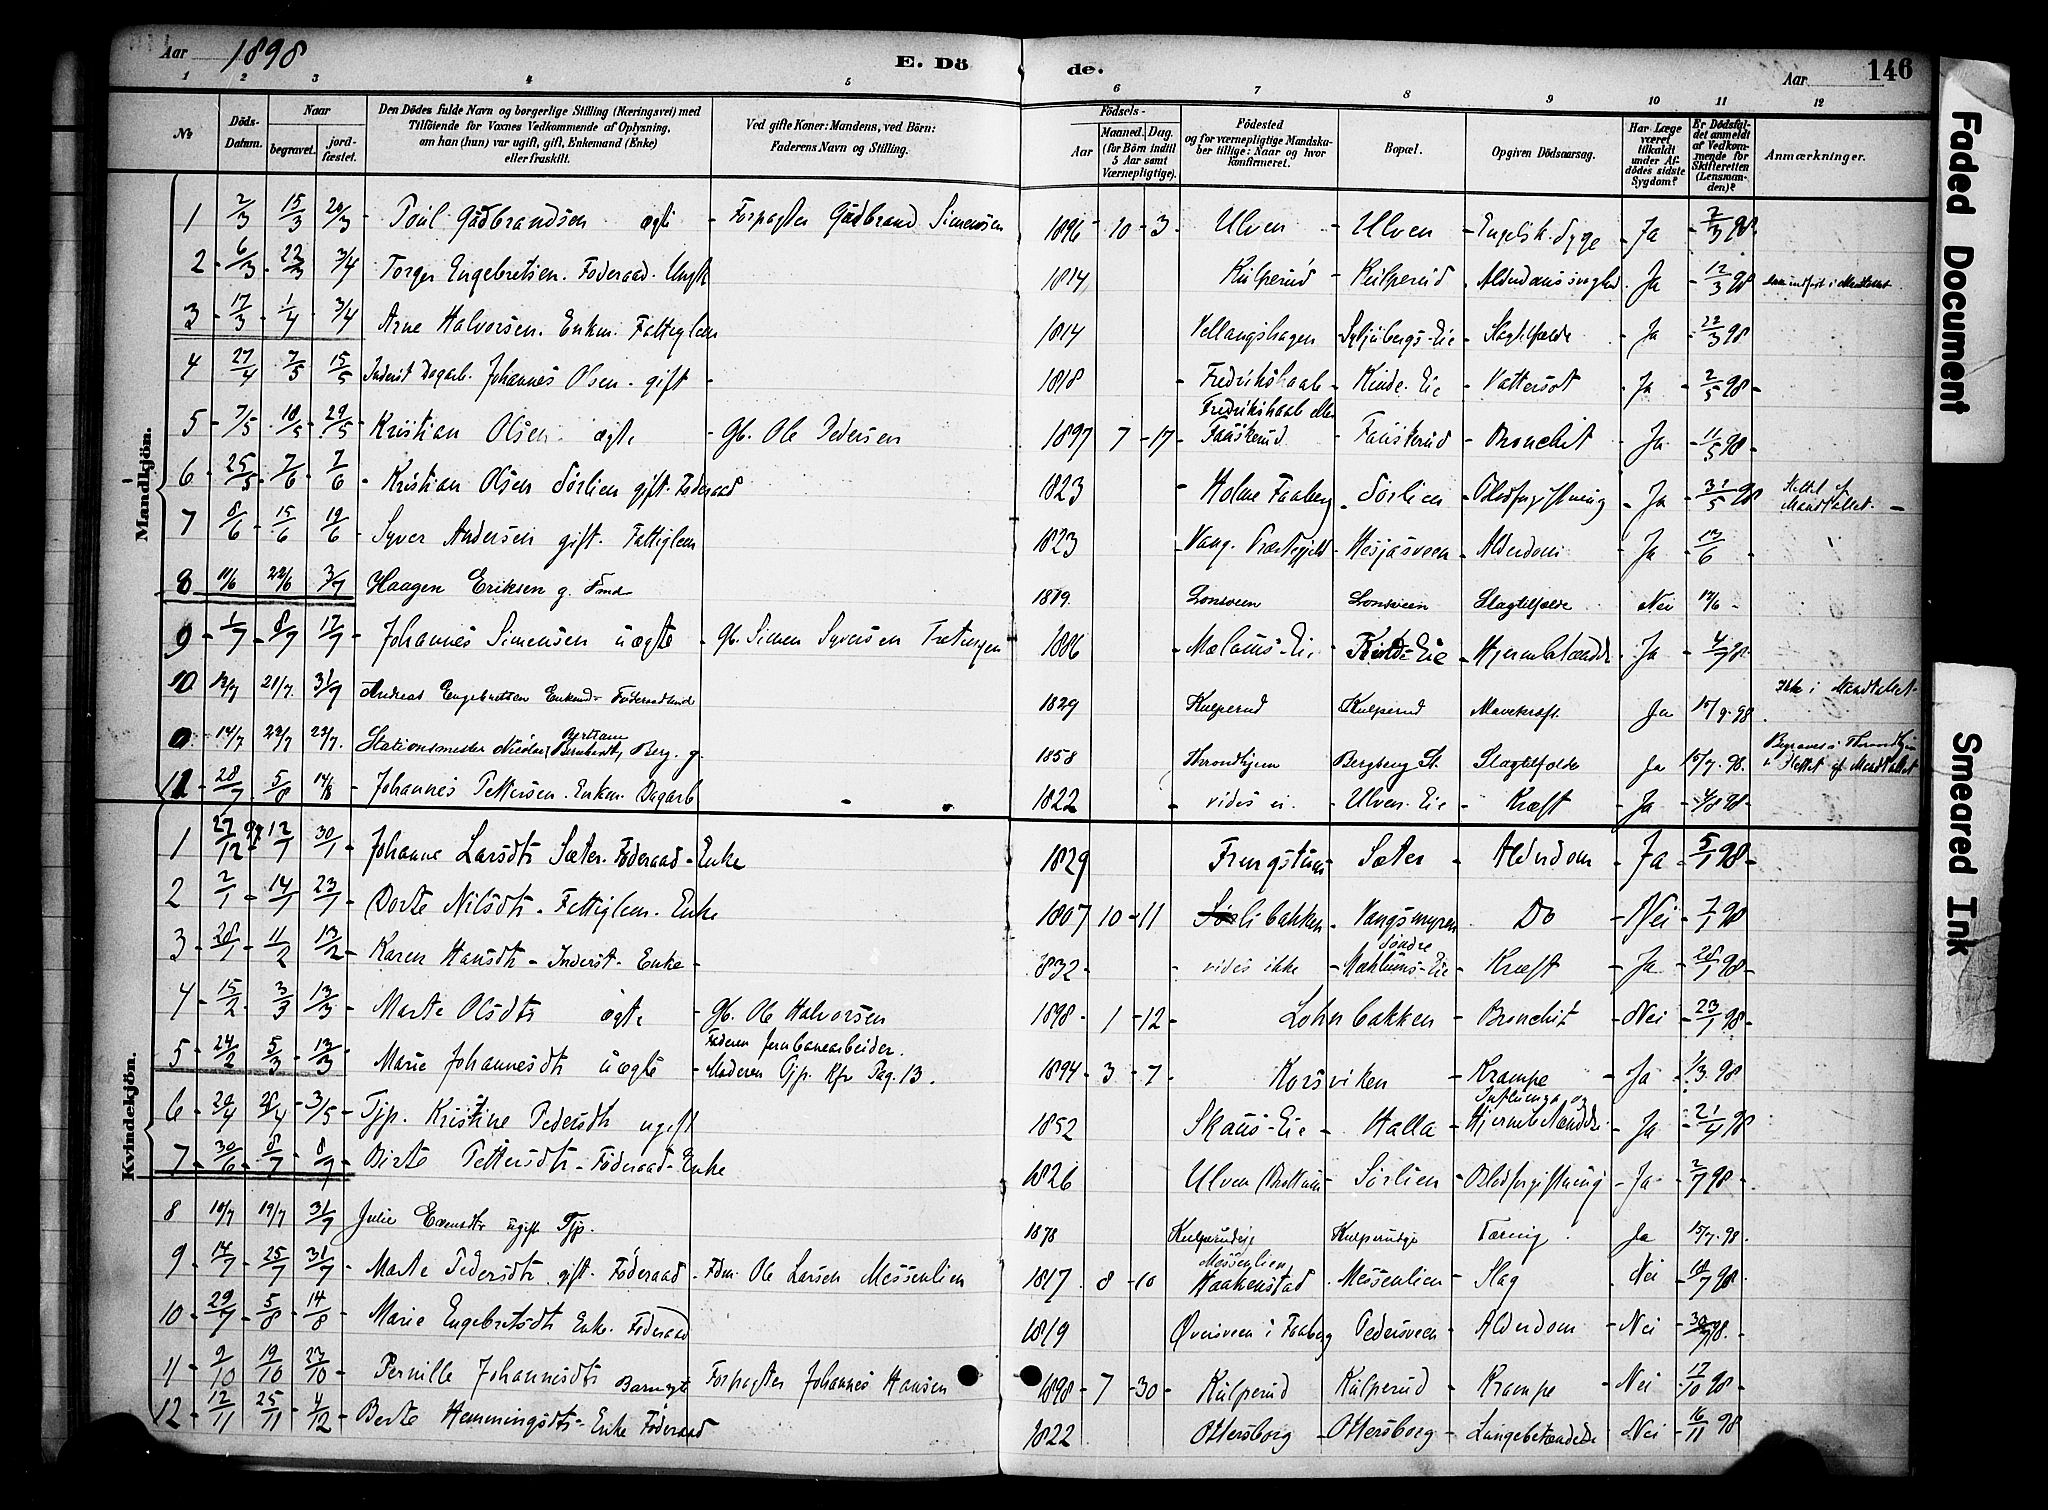 Aar 1898
E. Dö de.
Aar 146
1 2 3 4 5 6 7 8 9 10 11 12
№
Döds-Datum.
Naar begravet. jordfæstet.
Den Dödes fulde Navn og borgerlige Stilling (Næringsvei) med Tilföiende for Voxnes Vedkommende af Oplysning, om han (hun) var ugift, gift, Enkemand (Enke) eller fraskilt.
Ved gifte Koner: Mandens, ved Börn: Faderens Navn og Stilling.
Födsels-
Aar Maaned. Dag. (for Börn indtil 5 Aar samt Værnepligtige).
Födested og for værnepligtige Mandskaber tillige: Naar og hvor konfirmeret.
Bopæl.
Opgiven Dödsaarsag.
Har Læge været tilkaldt under Afdödes sidste Sygdom?
Er Dödsfaldet anmeldt af Vedkommende for Skifteretten (Lensmanden)?
Anmærkninger.
Mandkjön.
1 2/3 15/3 20/3 Poul Gudbrandsen ægte - Forpagter Gudbrand Simensen 1896 - 10 - 3 Ulven - Ulven - Engelsk Syge - Ja - 2/3 98
2 6/3 22/3 3/4 Torger Engebretsen. Føderaad. Ungk 1814 Kulperud - Kulperud - Alderdomssvaghed Ja - 12/3 98
3 17/3 1/4 3/4 Arne Halvorsen. Enkm. Fattiglem 1814 Vellangshagen - Eie - Slagtilfælde - Ja - 22/3 98
4 27/4 7/5 15/5 Inderst Dagarb. Johannes Olsen. gift - 1818 - Fredrikshaab - Kinde. Eie - Vattersot - Ja - 2/5 98 -
5 7/5 10/5 29/5 Kristian Olsen. ægte - Gb. Ole Pedersen 1897 7 - 17 - Fredrikshaab eller Fauskerud - Fauskerud - Bronchit - Ja - 11/5 98
6 25/5 7/6 7/6 - Kristian Olsen Sørlien gift. Føderaad 1823 - Holme Faaberg - Sørlien - Blodforgiftning - Ja - 31/5 98 Slettet af Mandtallet. -
7 8/6 15/6 19/6 Syver Andersen gift. Fattiglem 1823 - Vang. Præstegjeld - Hesjasveen - Alderdom - Ja - 13/6
8 11/6 22/6 3/7 Haagen Eriksen g. Fmd. 1819. Lonsveen Lonsveen Slagtilfælde Nei 12/6 -
9 1/7 8/7 17/7 Johannes Simensen uægte - Gb. Simen Syversen Tretungen 1886 - Mælums - Eie - Kind - Eie - Hjernebetændelse - Ja - 4/7 98 -
10 12/7 21/7 31/7 Andreas Engebretsen Enkemd - Føderaadsmd 1829 Kulperud Kulperud Mavekræft. Ja 15/7. 98. Ikke i Mandtallet -
14/7 22/7 22/7. Stationsmester Nicolai Bertram Bernhardt, Berg. g. 1858 Throndhjem Bergberg St. Slagtilfælde Ja 15/7. 98. Begraves i Throndhjem Slettet af Mandtallet
11 28/7 5/8 14/8 Johannes Pettersen. Enkm. Dagarb 1822 - vides ei. - Ulven. Eie - Kræft - Ja - 4/8 98 -
Kvindekjön.
1 27/12 97 12/1 30/1 Johanne Larsdtr Sæter. Føderaad - Enke 1829 Frengstuen - Sæter - Alderdom - Ja - 5/1 98 -
2 2/1 14/1 23/1 Dorte Nilsdtr - Fattiglem. Enke 1807 10 - 11 Sørlibakken - Vangsmyren Do - Nei - 7/1 98
3 28/1 11/2 13/2 Karen Hansdtr - Inderst. Enke - 1832 - - vides ikke - Søndre Mæhlums - Eie - Kræft - Ja - 28/1 98 -
4 15/2 3/3 13/3 Marte Olsdtr ægte - Gb. Ole Halvorsen 1898 - 1 - 12 - Lohnbakken - Bronchit - Nei - 23/1 98 -
5 24/2 5/3 13/3 Marie Johannesdtr uægte - Faderen Jernbanearbeider. Moderen Gjp. Kfr Pag. 13. 1894 - 3 - 7 Korsviken - Krampe - Ja - 1/3 98
6 20/4 28/4 3/5 Tjp. Kristine Pedersdtr ugift 1852 Skaus - Eie - Halla - Influenza og Hjernebetændelse - Ja - 21/4 98
7 30/6 8/7 8/7 - Birte Pettersdtr - Føderaad - Enke 1826 Ulven Brøttum - Sørlien - Blodforgiftning - Ja - 2/7 98 -
8 10/7 19/7 31/7 Julie Evensdtr ugift Tjp. 1878 Kulperudeje Kulperudeje Tæring. Ja 15/7. 98.
9 14/7 25/7 31/7 Marte Pedersdtr. gift. Føderaad - Fdm. Ole Larsen Messenlien 1817 8 - 10 Messenlien Haakenstad. Messenlien - Slag - Nei - 18/7 98 -
10 29/7 5/8 14/8 Marie Engebretsdtr Enke. Føderaad 1819 Øvensveen i Faaberg Pedersveen - Alderdom - Nei - 30/7 98. -
11 9/10 19/10 23/10 Pernille Johannesdtr Barn ægte Forpagter Johannes Hansen 1898 - 7 - 30 - Kulperud - Kulperud - Krampe - Nei - 12/10 98 -
12 12/11 25/11 4/12 Berte Hemmingsdtr - Enke Føderaad 1822 Ottersborg - Ottersborg - Lungebetændelse - Nei - 16/11 98 -
Faded Document
Smeared Ink